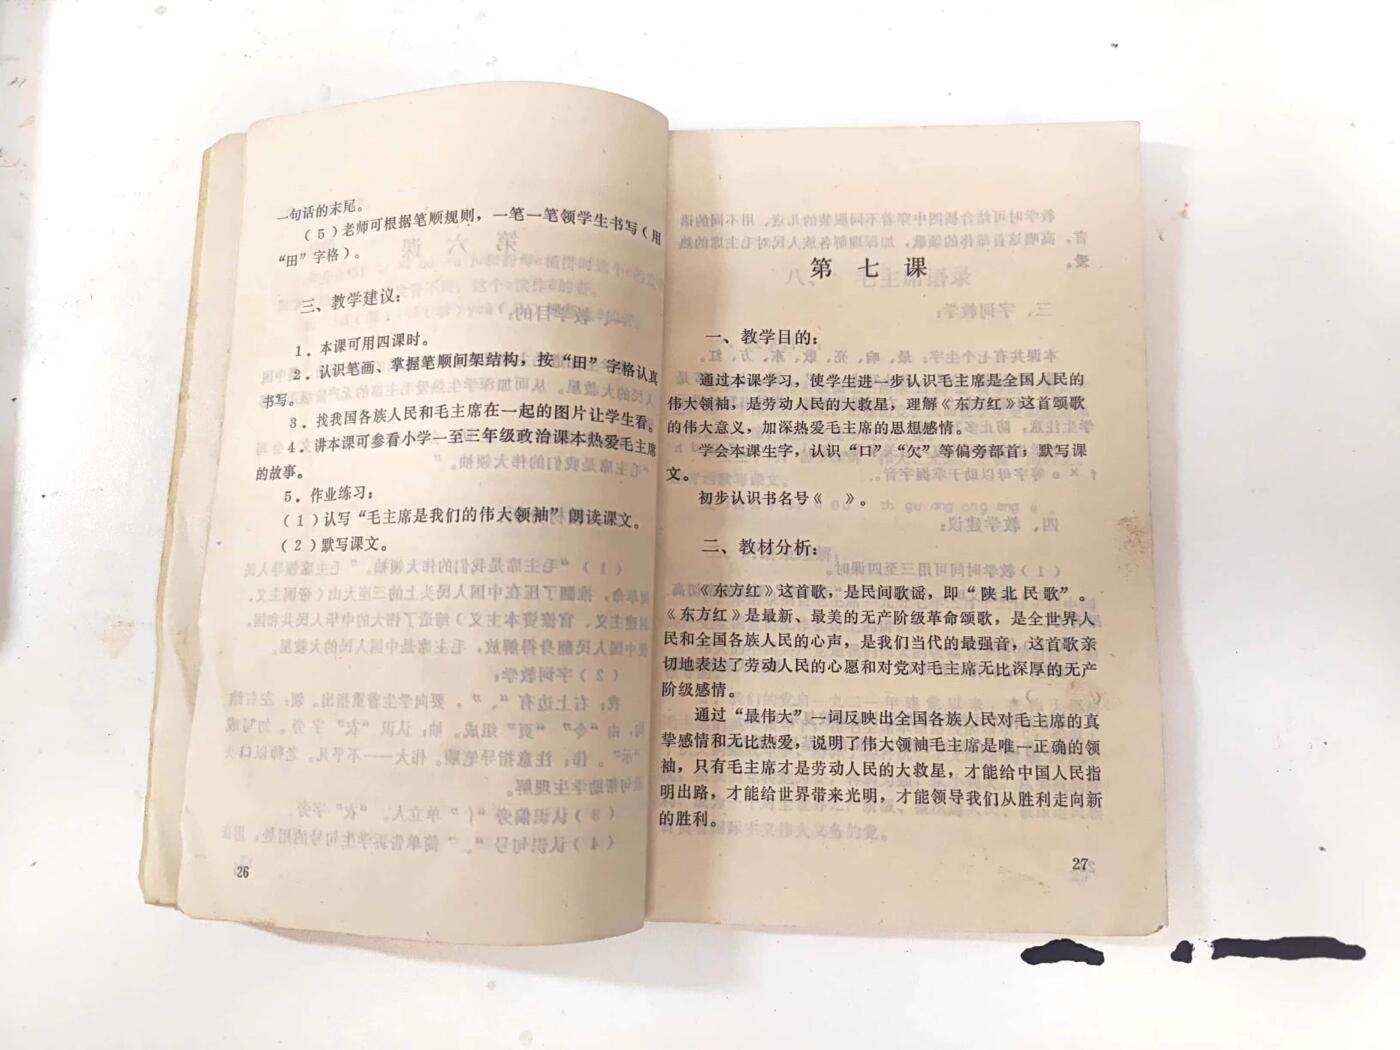 一句话的末尾。
（5）老师可根据笔顺规则，一笔一笔领学生书写（用
“田”字格）。
三、教学建议：
1．本课可用四课时。
2．认识笔画、掌握笔顺间架结构，按“田”字格认真
书写。
3．找我国各族人民和毛主席在一起的图片让学生看。
4．讲本课可参看小学一至三年级政治课本热爱毛主席
的故事。
5．作业练习：
（1）认写“毛主席是我们的伟大领袖”朗读课文。
（2）默写课文。
26
第七课
一、教学目的：
通过本课学习，使学生进一步认识毛主席是全国人民的
伟大领袖，是劳动人民的大救星，理解《东方红》这首颂歌
的伟大意义，加深热爱毛主席的思想感情。
学会本课生字，认识“口”“欠”等偏旁部首；默写课
文。
初步认识书名号《　》。
二、教材分析：
《东方红》这首歌，是民间歌谣，即“陕北民歌”。
《东方红》是最新、最美的无产阶级革命颂歌，是全世界人
民和全国各族人民的心声，是我们当代的最强音，这首歌亲
切地表达了劳动人民的心愿和对党对毛主席无比深厚的无产
阶级感情。
通过“最伟大”一词反映出全国各族人民对毛主席的真
挚感情和无比热爱，说明了伟大领袖毛主席是唯一正确的领
袖，只有毛主席才是劳动人民的大救星，才能给中国人民指
明出路，才能给世界带来光明，才能领导我们从胜利走向新
的胜利。
27